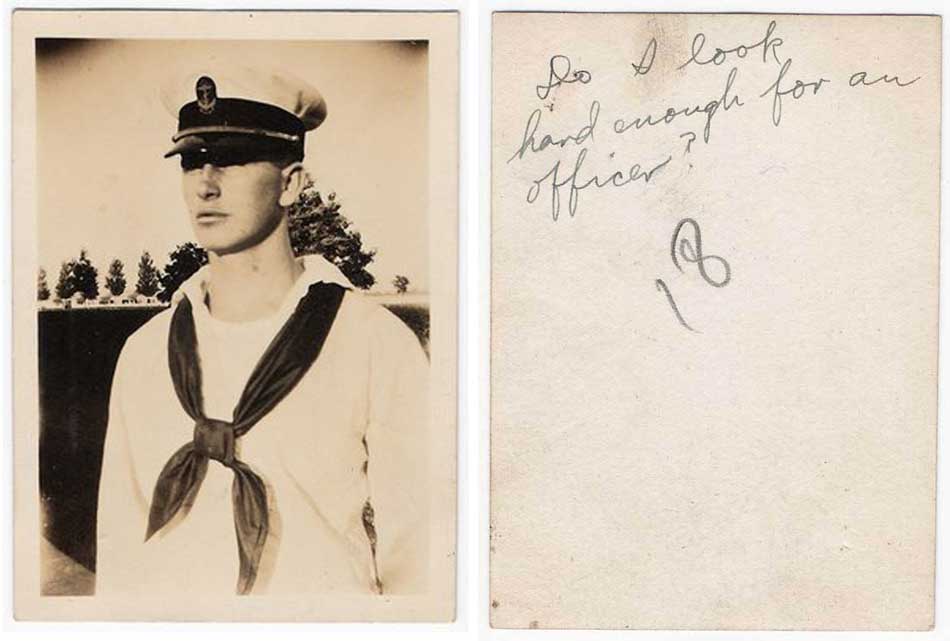 Do I look
hard enough for an
officer?
18